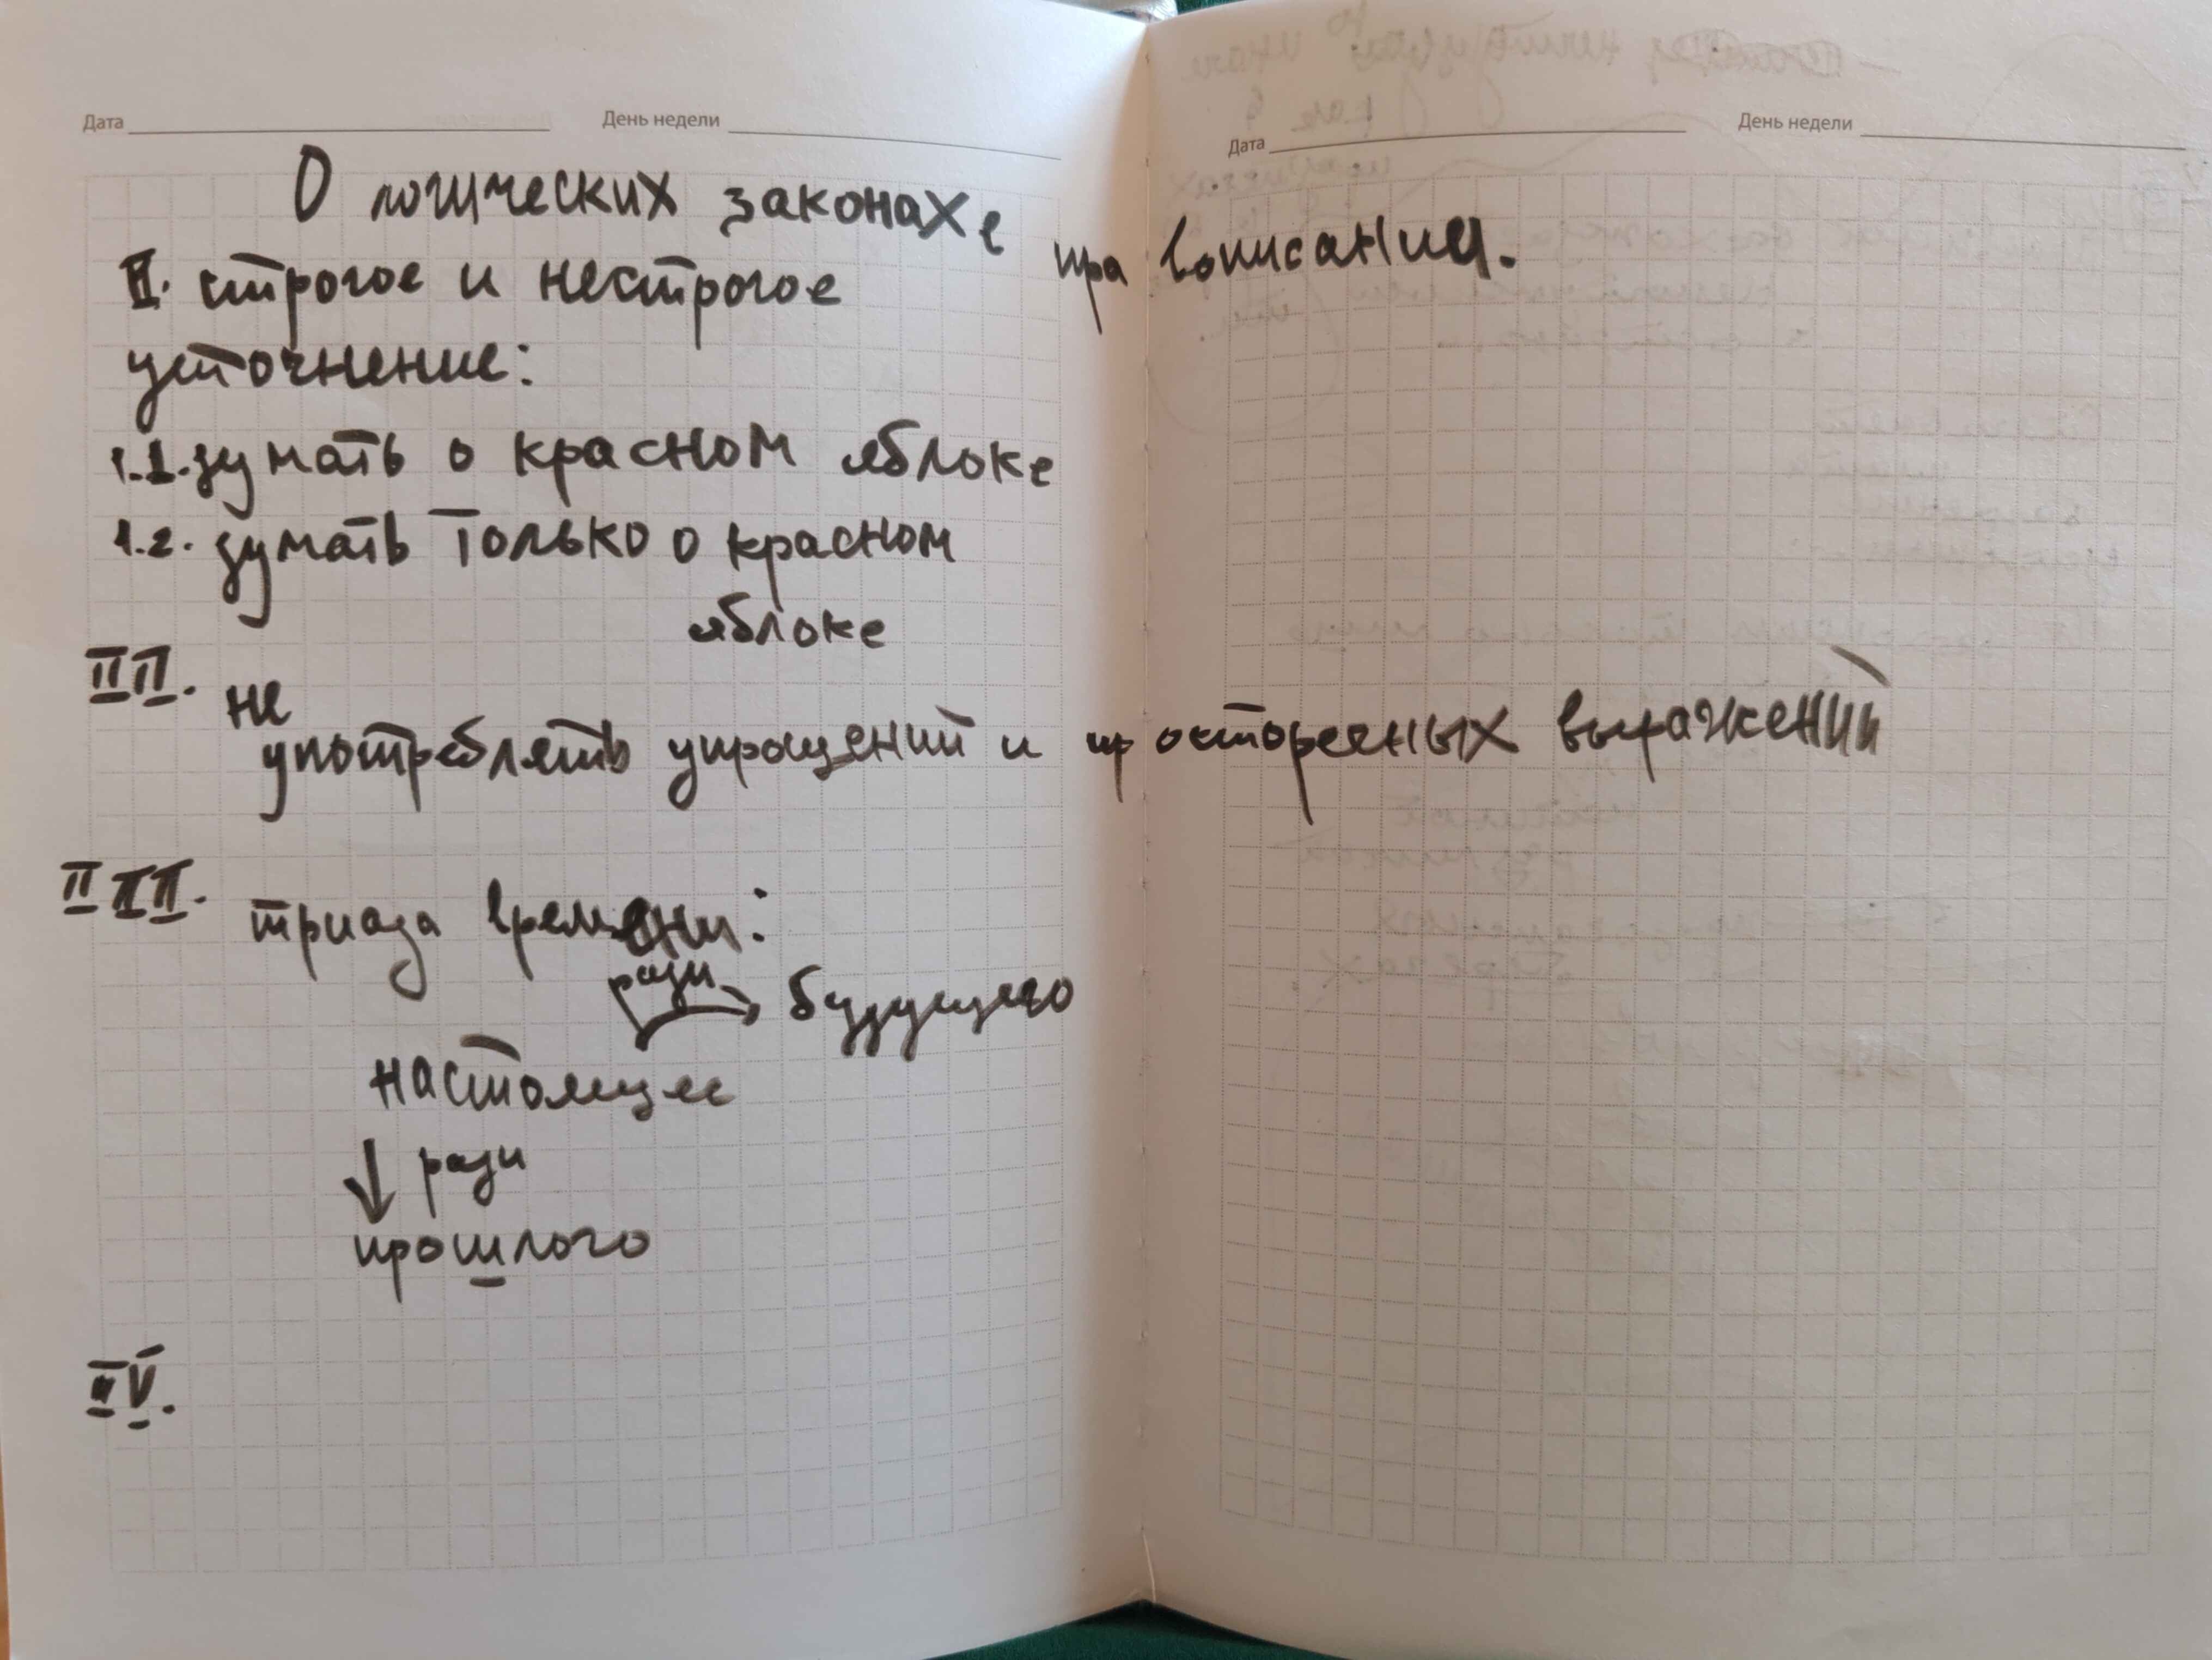 Дата День недели
Дата День недели
О логических законах е правописания.
I. строгое и нестрогое
уточнение:
1.1. думать о красном яблоке
1.2. думать только о красном
яблоке
II.
не
употреблять упрощений и просторечных выражений
III. триада времени:
ради
будущего
настоящее
ради
прошлого
IV.